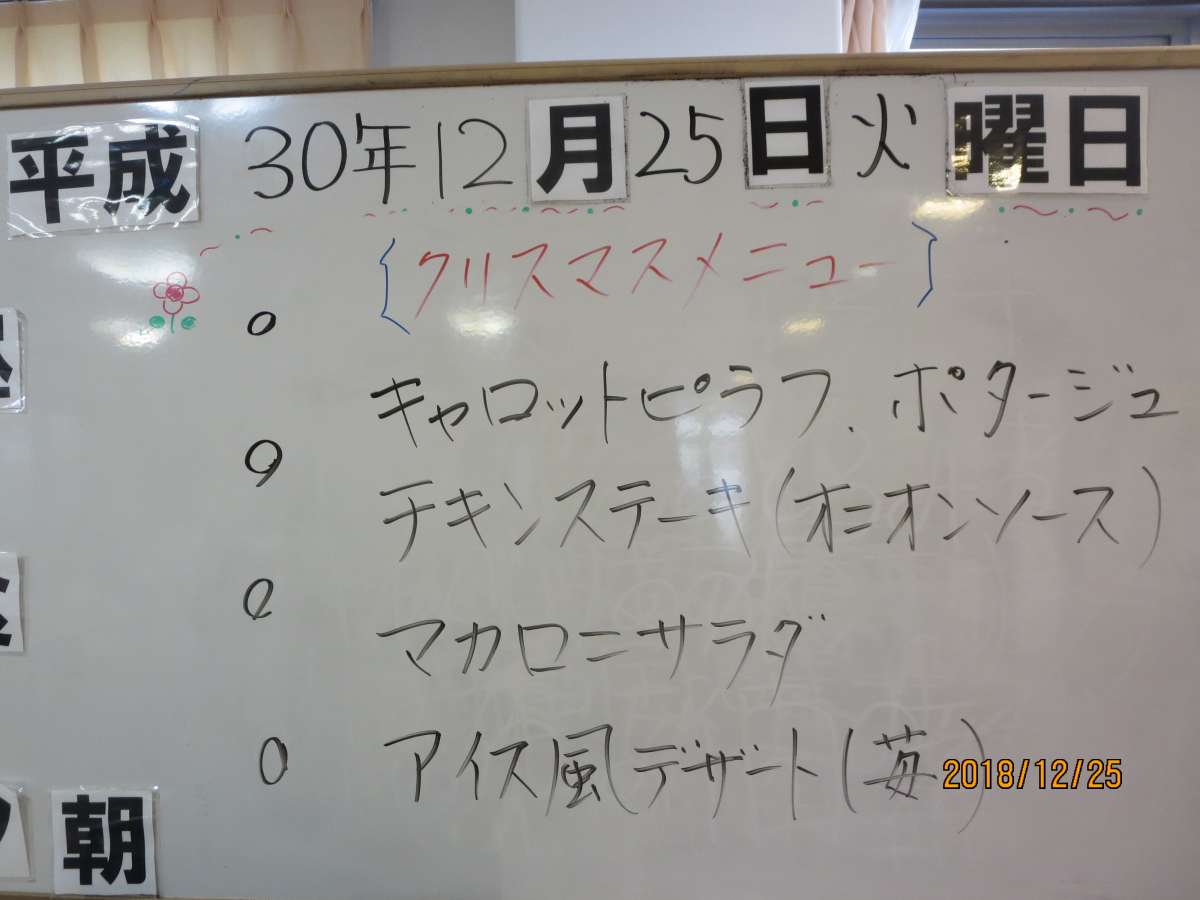 平成 30年12月25日火曜日
{クリスマスメニュー}
キャロットピラフ、ポタージュ
チキンステーキ(オニオンソース)
マカロニサラダ
アイス風デザート(苺)
2018/12/25
朝